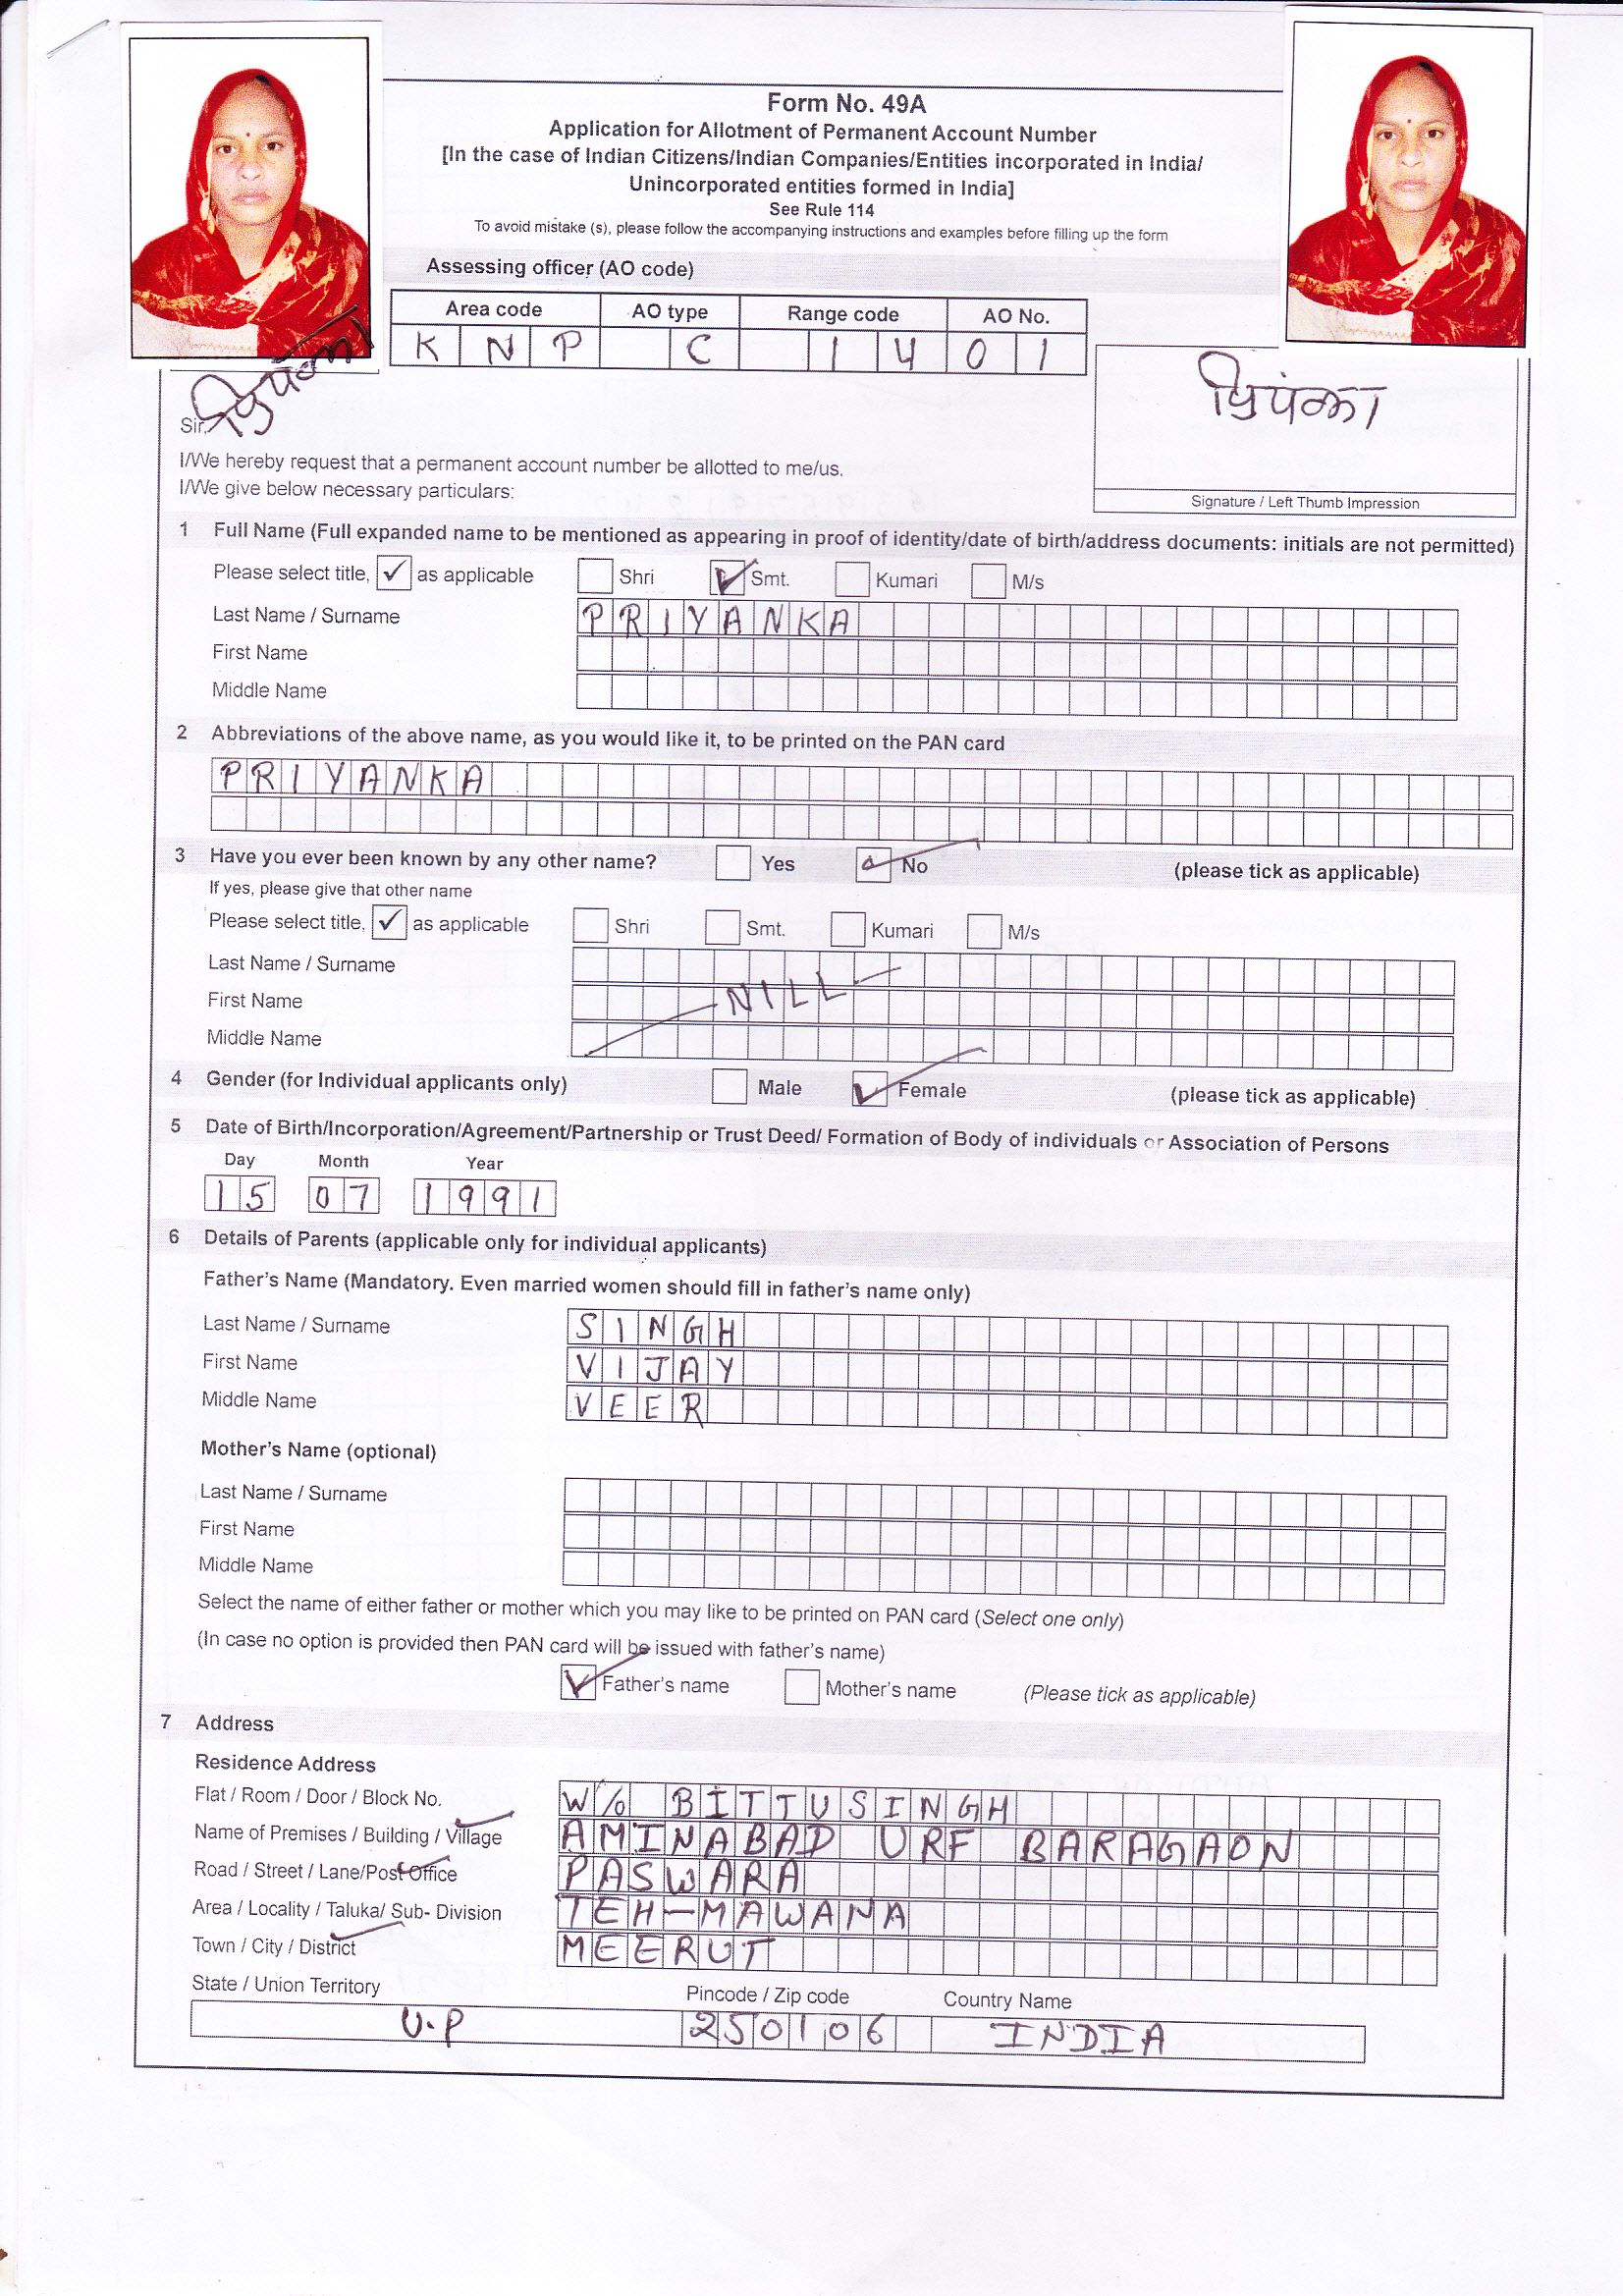 Form No. 49A
Application for Allotment of Permanent Account Number
[In the case of Indian Citizens/Indian Companies/Entities incorporated in India/
Unincorporated entities formed in India]
See Rule 114
To avoid mistake (s), please follow the accompanying instructions and examples before filling up the form
Assessing officer (AO code)
Area code AO type Range code AO No.
K N P C 1 4 0 1
प्रियंका
प्रियंका
Sir,
I/We hereby request that a permanent account number be allotted to me/us.
I/We give below necessary particulars:
Signature / Left Thumb Impression
1 Full Name (Full expanded name to be mentioned as appearing in proof of identity/date of birth/address documents: initials are not permitted)
Please select title, ✓ as applicable Shri ✓ Smt. Kumari M/s
Last Name / Surname PRIYANKA
First Name
Middle Name
2 Abbreviations of the above name, as you would like it, to be printed on the PAN card
PRIYANKA
3 Have you ever been known by any other name? Yes No (please tick as applicable)
If yes, please give that other name
Please select title, ✓ as applicable Shri Smt. Kumari M/s
Last Name / Surname
First Name NILL
Middle Name
4 Gender (for Individual applicants only) Male ✓ Female (please tick as applicable)
5 Date of Birth/Incorporation/Agreement/Partnership or Trust Deed/ Formation of Body of individuals or Association of Persons
Day Month Year
15 07 1991
6 Details of Parents (applicable only for individual applicants)
Father's Name (Mandatory. Even married women should fill in father's name only)
Last Name / Surname SINGH
First Name VIJAY
Middle Name VEER
Mother's Name (optional)
Last Name / Surname
First Name
Middle Name
Select the name of either father or mother which you may like to be printed on PAN card (Select one only)
(In case no option is provided then PAN card will be issued with father's name)
✓ Father's name Mother's name (Please tick as applicable)
7 Address
Residence Address
Flat / Room / Door / Block No. W/o BITTU SINGH
Name of Premises / Building / Village AMINABAD URF BARAGAON
Road / Street / Lane/Post Office PASWARA
Area / Locality / Taluka/ Sub- Division TEH-MAWANA
Town / City / District MEERUT
State / Union Territory Pincode / Zip code Country Name
U.P 250106 INDIA